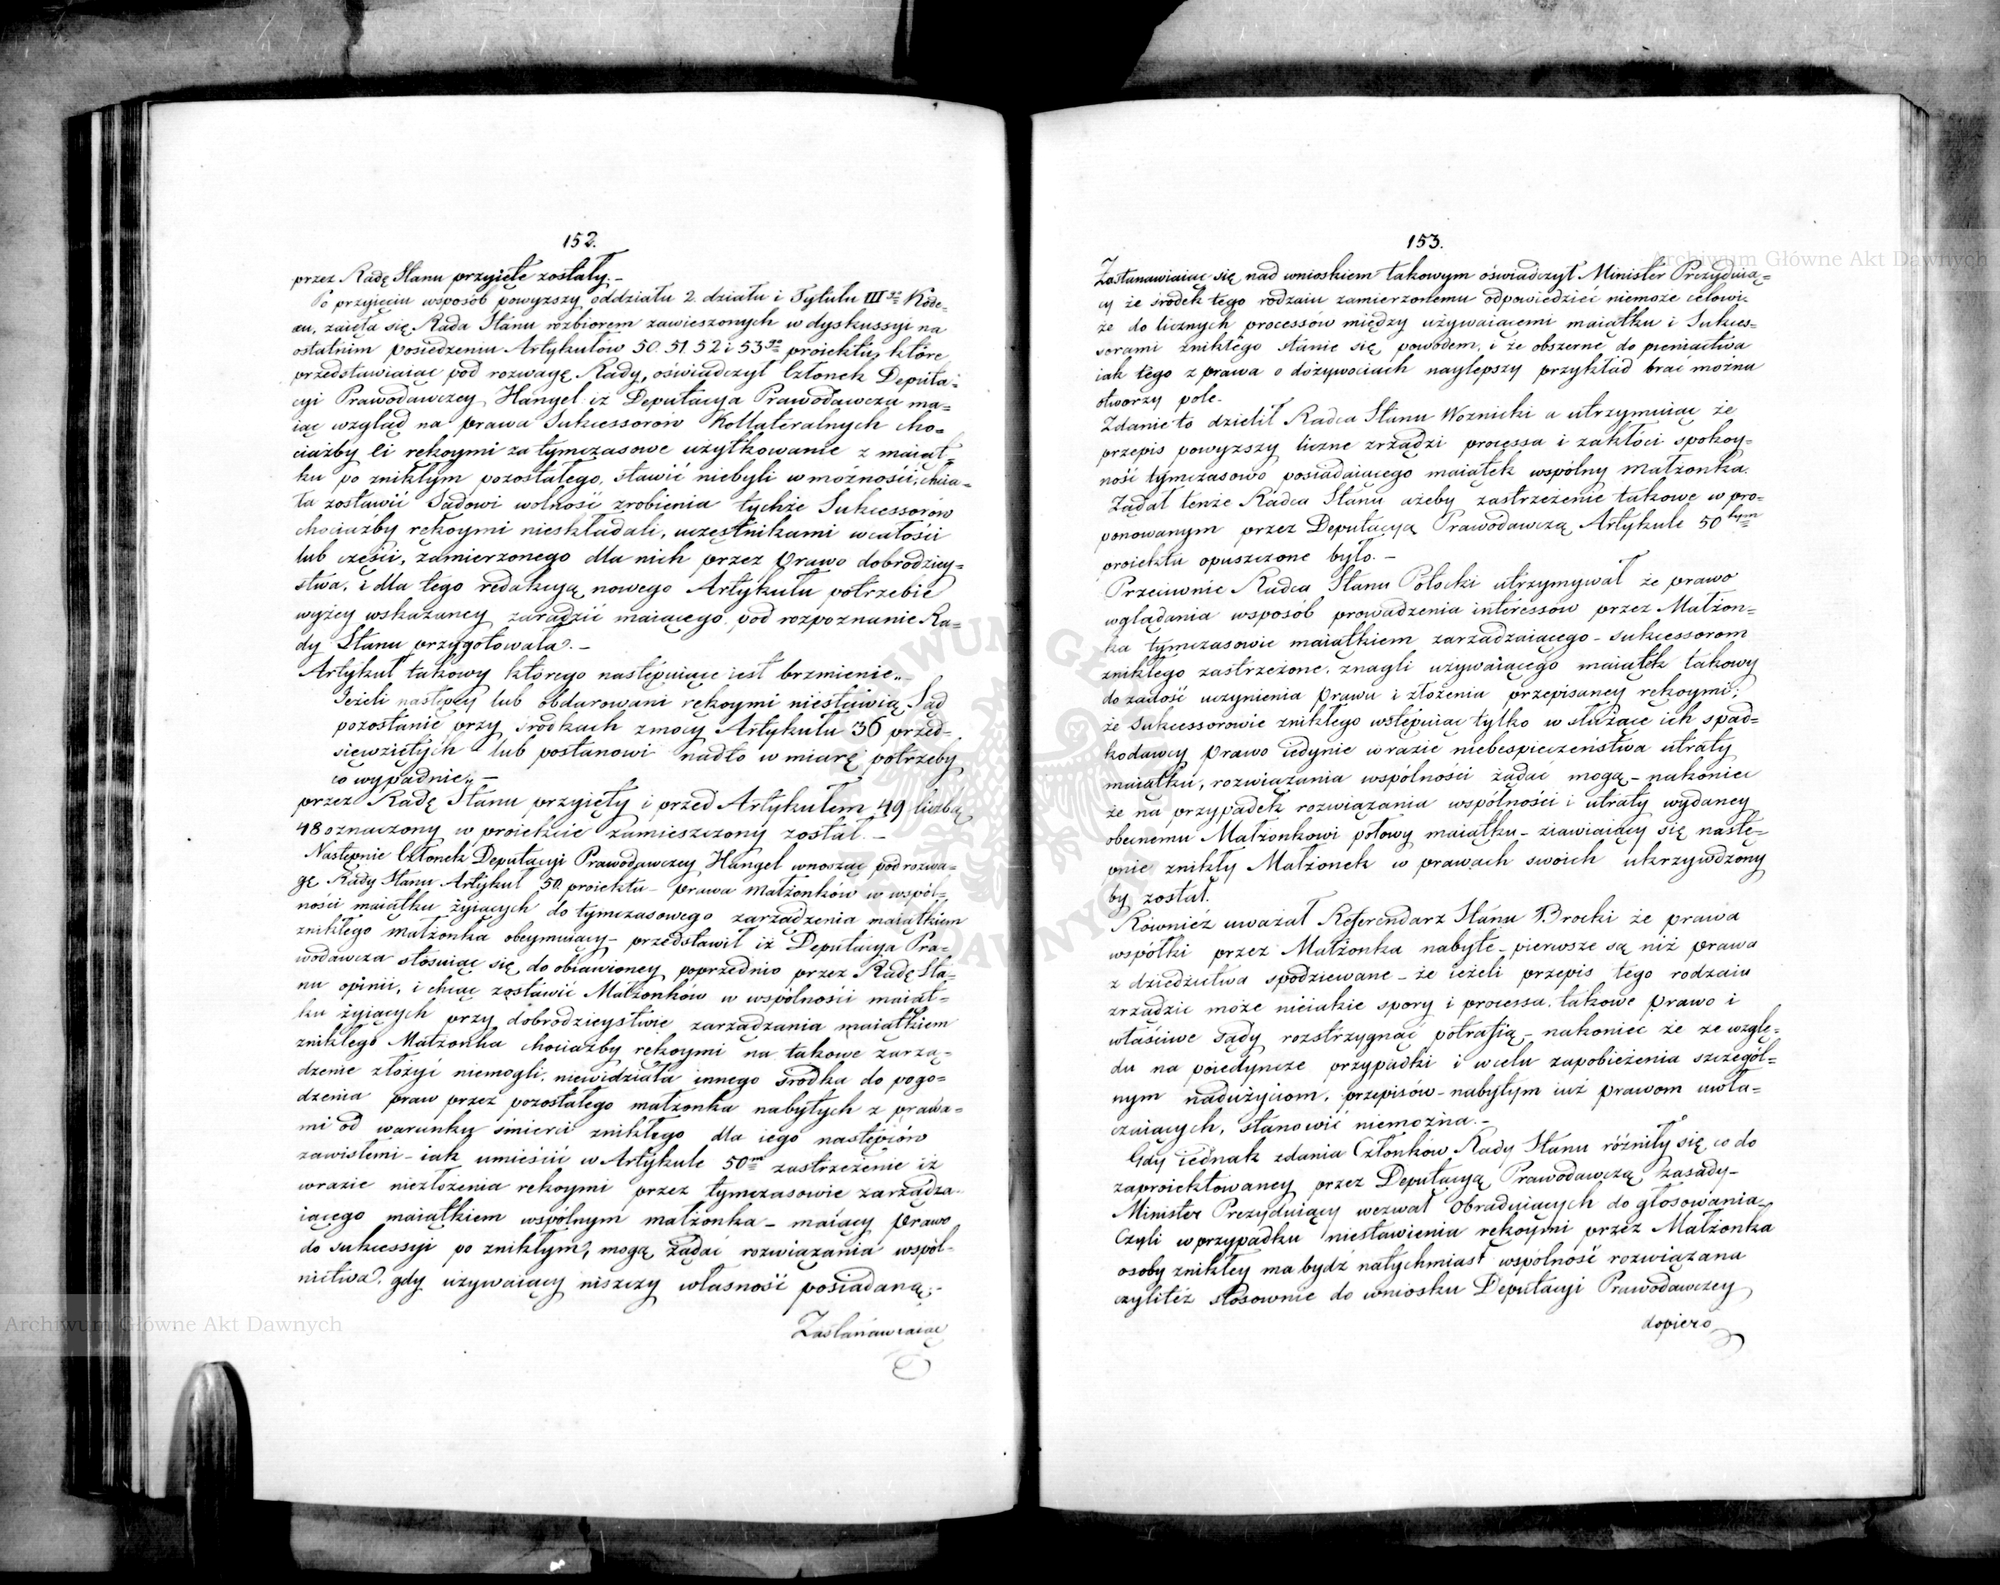 152.
przez Radę Stanu przyięte zostały. –
Po przyięciu wsposób powyższy, oddziału 2. działu i Tytułu III go Kode-
xu, zaięła się Rada Stanu rozbiorem zawieszonych w dyskussyi na
ostatnim posiedzeniu Artykułów 50. 51. 52 i 53 go proiektu, które
przedstawiaiąc pod rozwagę Rady, oświadczył Członek Deputa-
cyi Prawodawczey Hangel iż Deputacya Prawodawcza ma-
iąc wzgląd na prawa Sukcessorów Kollateralnych cho-
ciażby ci rękoymi za tymczasowe użytkowanie z maiąt-
ku po znikłym pozostałego, stawić niebyli w możności, chcia-
ła zostawić Sądowi wolność zrobienia tychże Sukcessorów
chociażby rękoymi nieskładali, uczęstnikami w całości
lub części, zamierzonego dla nich przez Prawo dobrodziey-
stwa, i dla tego redakcyą nowego Artykułu potrzebie
wyżey wskazaney zaradzić maiącego, pod rozpoznanie Ra-
dy Stanu przygotowała. –
Artykuł takowy którego następuiące iest brzmienie„
Jeżeli następcy lub obdarowani rękoymi niestawią, Sąd
pozostanie przy środkach z mocy Artykułu 36 przed-
sięwziętych lub postanowi nadto w miarę potrzeby
co wypadnie„ –
przez Radę Stanu przyięty i przed Artykułem 49 liczbą
48 oznaczony w proiekcie zamieszczony został. –
Następnie Członek Deputacyi Prawodawczey Hangel wnosząc pod rozwa-
gę Rady Stanu Artykuł 50. proiektu – prawa małżonków w wspól-
ności maiątku żyiących do tymczasowego zarządzenia maiątkiem
znikłego małżonka obeymuiący – przedstawił iż Deputacya Pra-
wodawcza stosuiąc się do obiawioney poprzednio przez Radę Sta-
nu opinii, i chcąc zostawić Małżonków w wspólności maiąt-
ku żyiących przy dobrodzieystwie zarządzania maiątkiem
znikłego Małżonka chociażby rękoymi na takowe zarzą-
dzenie złożyć niemogli, niewidziała innego środka do pogo-
dzenia praw przez pozostałego małżonka nabytych z prawa-
mi od warunku śmierci znikłego dla iego następców
zawisłemi – iak umieścić w Artykule 50 m zastrzeżenie iż
w razie niezłożenia rękoymi przez tymczasowie zarządza-
iącego maiątkiem wspólnym małżonka – maiący prawo
do sukcessyi po znikłym, mogą żądać rozwiązania wspól-
nictwa, gdy używaiący niszczy własność posiadaną;–
Zastanawiaiąc
153.
Zastanawiaiąc się nad wnioskiem takowym oświadczył Minister Prezyduią-
cy że środek tego rodzaiu zamierzonemu odpowiedzieć niemoże celowi.
że do licznych processów między używaiącemi maiątku i Sukces-
sorami znikłego stanie się powodem, i że obszerne do pieniactwa
iak tego z prawa o dożywociach naylepszy przykład brać można
otworzy pole.
Zdanie to dzielił Radca Stanu Woznicki a utrzymuiąc że
przepis powyższy liczne zrządzi processa i zakłóci spokoy-
ność tymczasowo posiadaiącego maiątek wspólny małżonka.
Żądał tenże Radca Stanu ażeby zastrzeżenie takowe w pro-
ponowanym przez Deputacyą Prawodawczą Artykule 50 tym
proiektu opuszczone było. –
Przeciwnie Radca Stanu Potocki utrzymywał że prawo
wglądania wsposób prowadzenia interessów przez Małżon-
ka tymczasowie maiątkiem zarządzaiącego – sukcessorom
znikłego zastrzeżone, znagli używaiącego maiątek takowy
do zadość uczynienia Prawu i złożenia przepisaney rękoymi;
że Sukcessorowie znikłego wstępuiąc tylko w służące ich spad-
kodawcy Prawo iedynie w razie niebespieczeństwa utraty
maiątku, rozwiązania wspólności żądać mogą – nakoniec
że na przypadek rozwiązania wspólności i utraty wydaney
obecnemu Małżonkowi połowy maiątku – ziawiaiący się nastę-
pnie znikły Małżonek w prawach swoich ukrzywdzony
by został.
Również uważał Referendarz Stanu Brocki że prawa
współki przez Małżonka nabyte – pierwsze są niż prawa
z dziedzictwa spodziewane – że ieżeli przepis tego rodzaiu
zrządzić może nieiakie spory i processa, takowe Prawo i
właściwe Sądy rozstrzygnąć potrafią – nakoniec że ze wzglę-
du na poiedyncze przypadki i w celu zapobieżenia szczegól-
nym nadużyciom, przepisów – nabytym iuż prawom uwła-
czaiących, stanowić niemożna. –
Gdy iednak zdania Członków Rady Stanu różniły się co do
zaproiektowaney przez Deputacyą Prawodawczą zasady –
Minister Prezyduiący wezwał Obraduiących do głosowania –
Czyli w przypadku niestawienia rękoymi przez Małżonka
osoby znikłey ma bydź natychmiast wspólność rozwiązana
czyliteż stosownie do wniosku Deputacyi Prawodawczey
dopiero
Archiwum Główne Akt Dawnych
Archiwum Główne Akt Dawnych